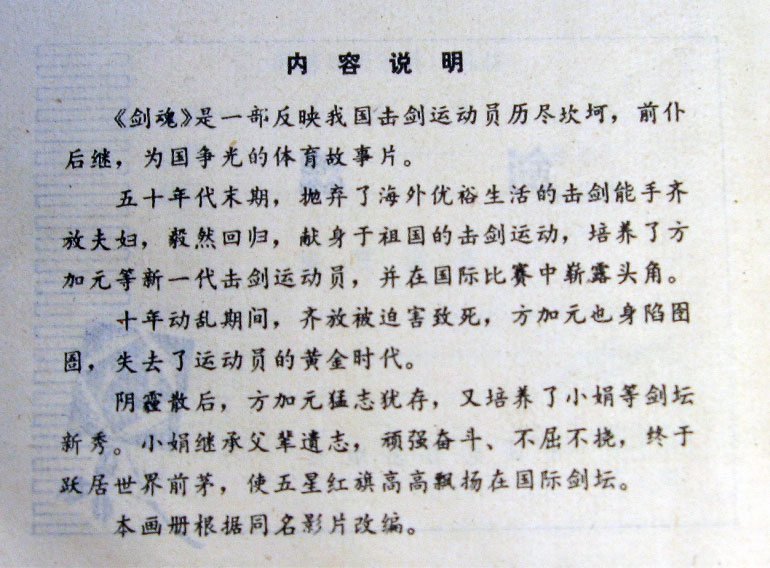 内容说明
《剑魂》是一部反映我国击剑运动员历尽坎坷，前仆
后继，为国争光的体育故事片。
五十年代末期，抛弃了海外优裕生活的击剑能手齐
放夫妇，毅然回归，献身于祖国的击剑运动，培养了方
加元等新一代击剑运动员，并在国际比赛中崭露头角。
十年动乱期间，齐放被迫害致死，方加元也身陷囹
圄，失去了运动员的黄金时代。
阴霾散后，方加元猛志犹存，又培养了小娟等剑坛
新秀。小娟继承父辈遗志，顽强奋斗、不屈不挠，终于
跃居世界前茅，使五星红旗高高飘扬在国际剑坛。
本画册根据同名影片改编。